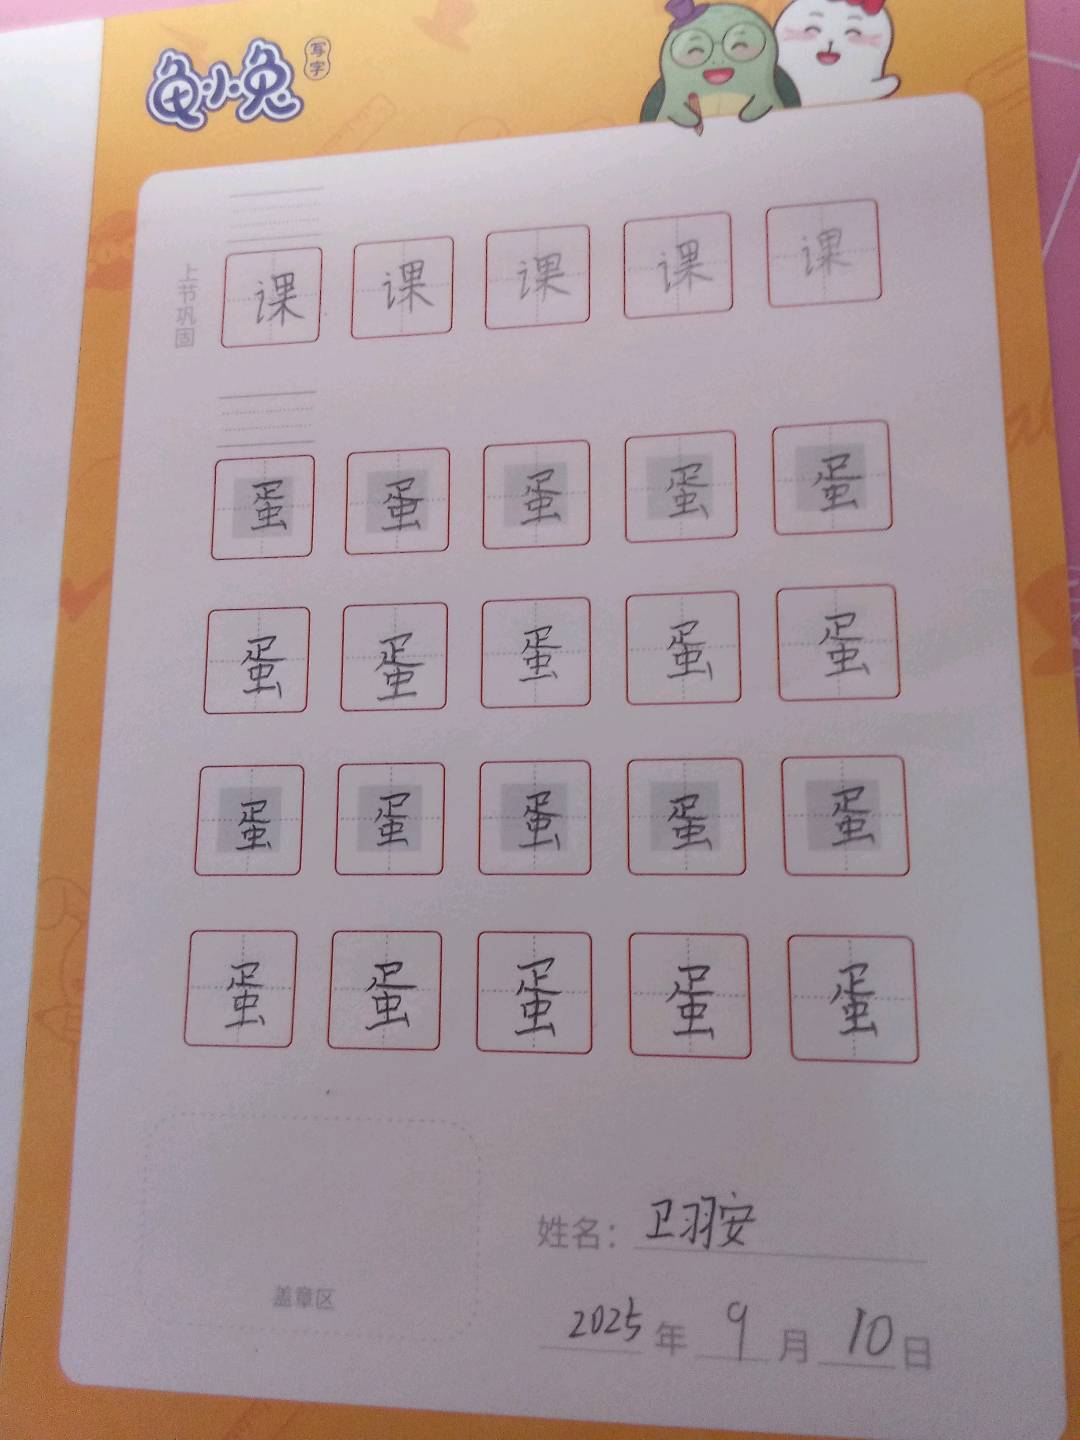 龟小兔
写字
上节巩固
课 课 课 课 课
蛋 蛋 蛋 蛋 蛋
蛋 蛋 蛋 蛋 蛋
蛋 蛋 蛋 蛋 蛋
蛋 蛋 蛋 蛋 蛋
姓名：卫羽安
盖章区
2025 年 9 月 10 日